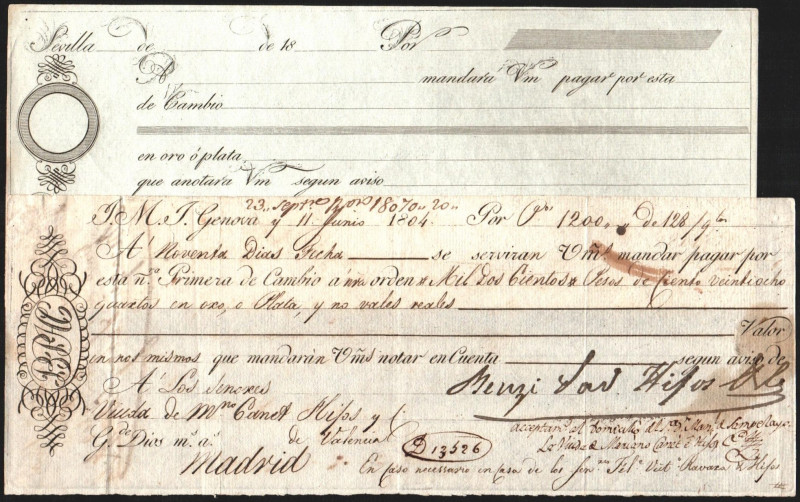 Sevilla de de 18 Por
A mandara Vm pagar por esta
de Cambio
en oro ó plata
que anotara Vm segun aviso
23 Septre
J. M. J. Genova y 11 Junio 1804. Por 1200 de 128/
A' Noventa Dias Fecha se serviran Vms mandar pagar por
esta nra Primera de Cambio a nra orden Mil Dos Cientos Pesos de Ciento Veintiocho
quartos en oro, o Plata, y no vales reales
Valor
en nos mismos que mandarán Vms notar en Cuenta segun aviso de
A' Los Senores Hijos
Viuda de Mno Canet Hijos y C.
Gde Dios ms as de Valencia
Madrid
D 13526
La Viuda de Mariano Canet e Hijos
En Caso necessario en Casa de los Hijos